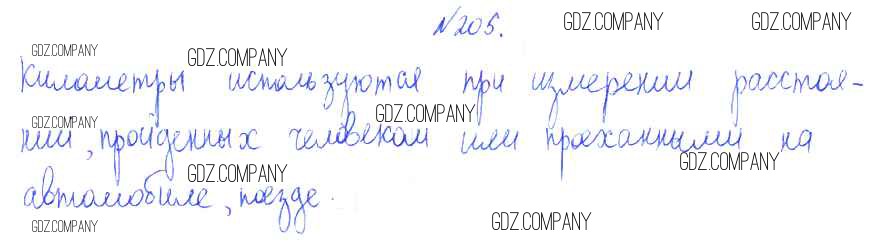 №205.
Километры используются при измерении расстоя-
нии, пройденных человеком или проеханными на
автомобиле, поезде.
GDZ.COMPANY
GDZ.COMPANY
GDZ.COMPANY
GDZ.COMPANY
GDZ.COMPANY
GDZ.COMPANY
GDZ.COMPANY
GDZ.COMPANY
GDZ.COMPANY
GDZ.COMPANY